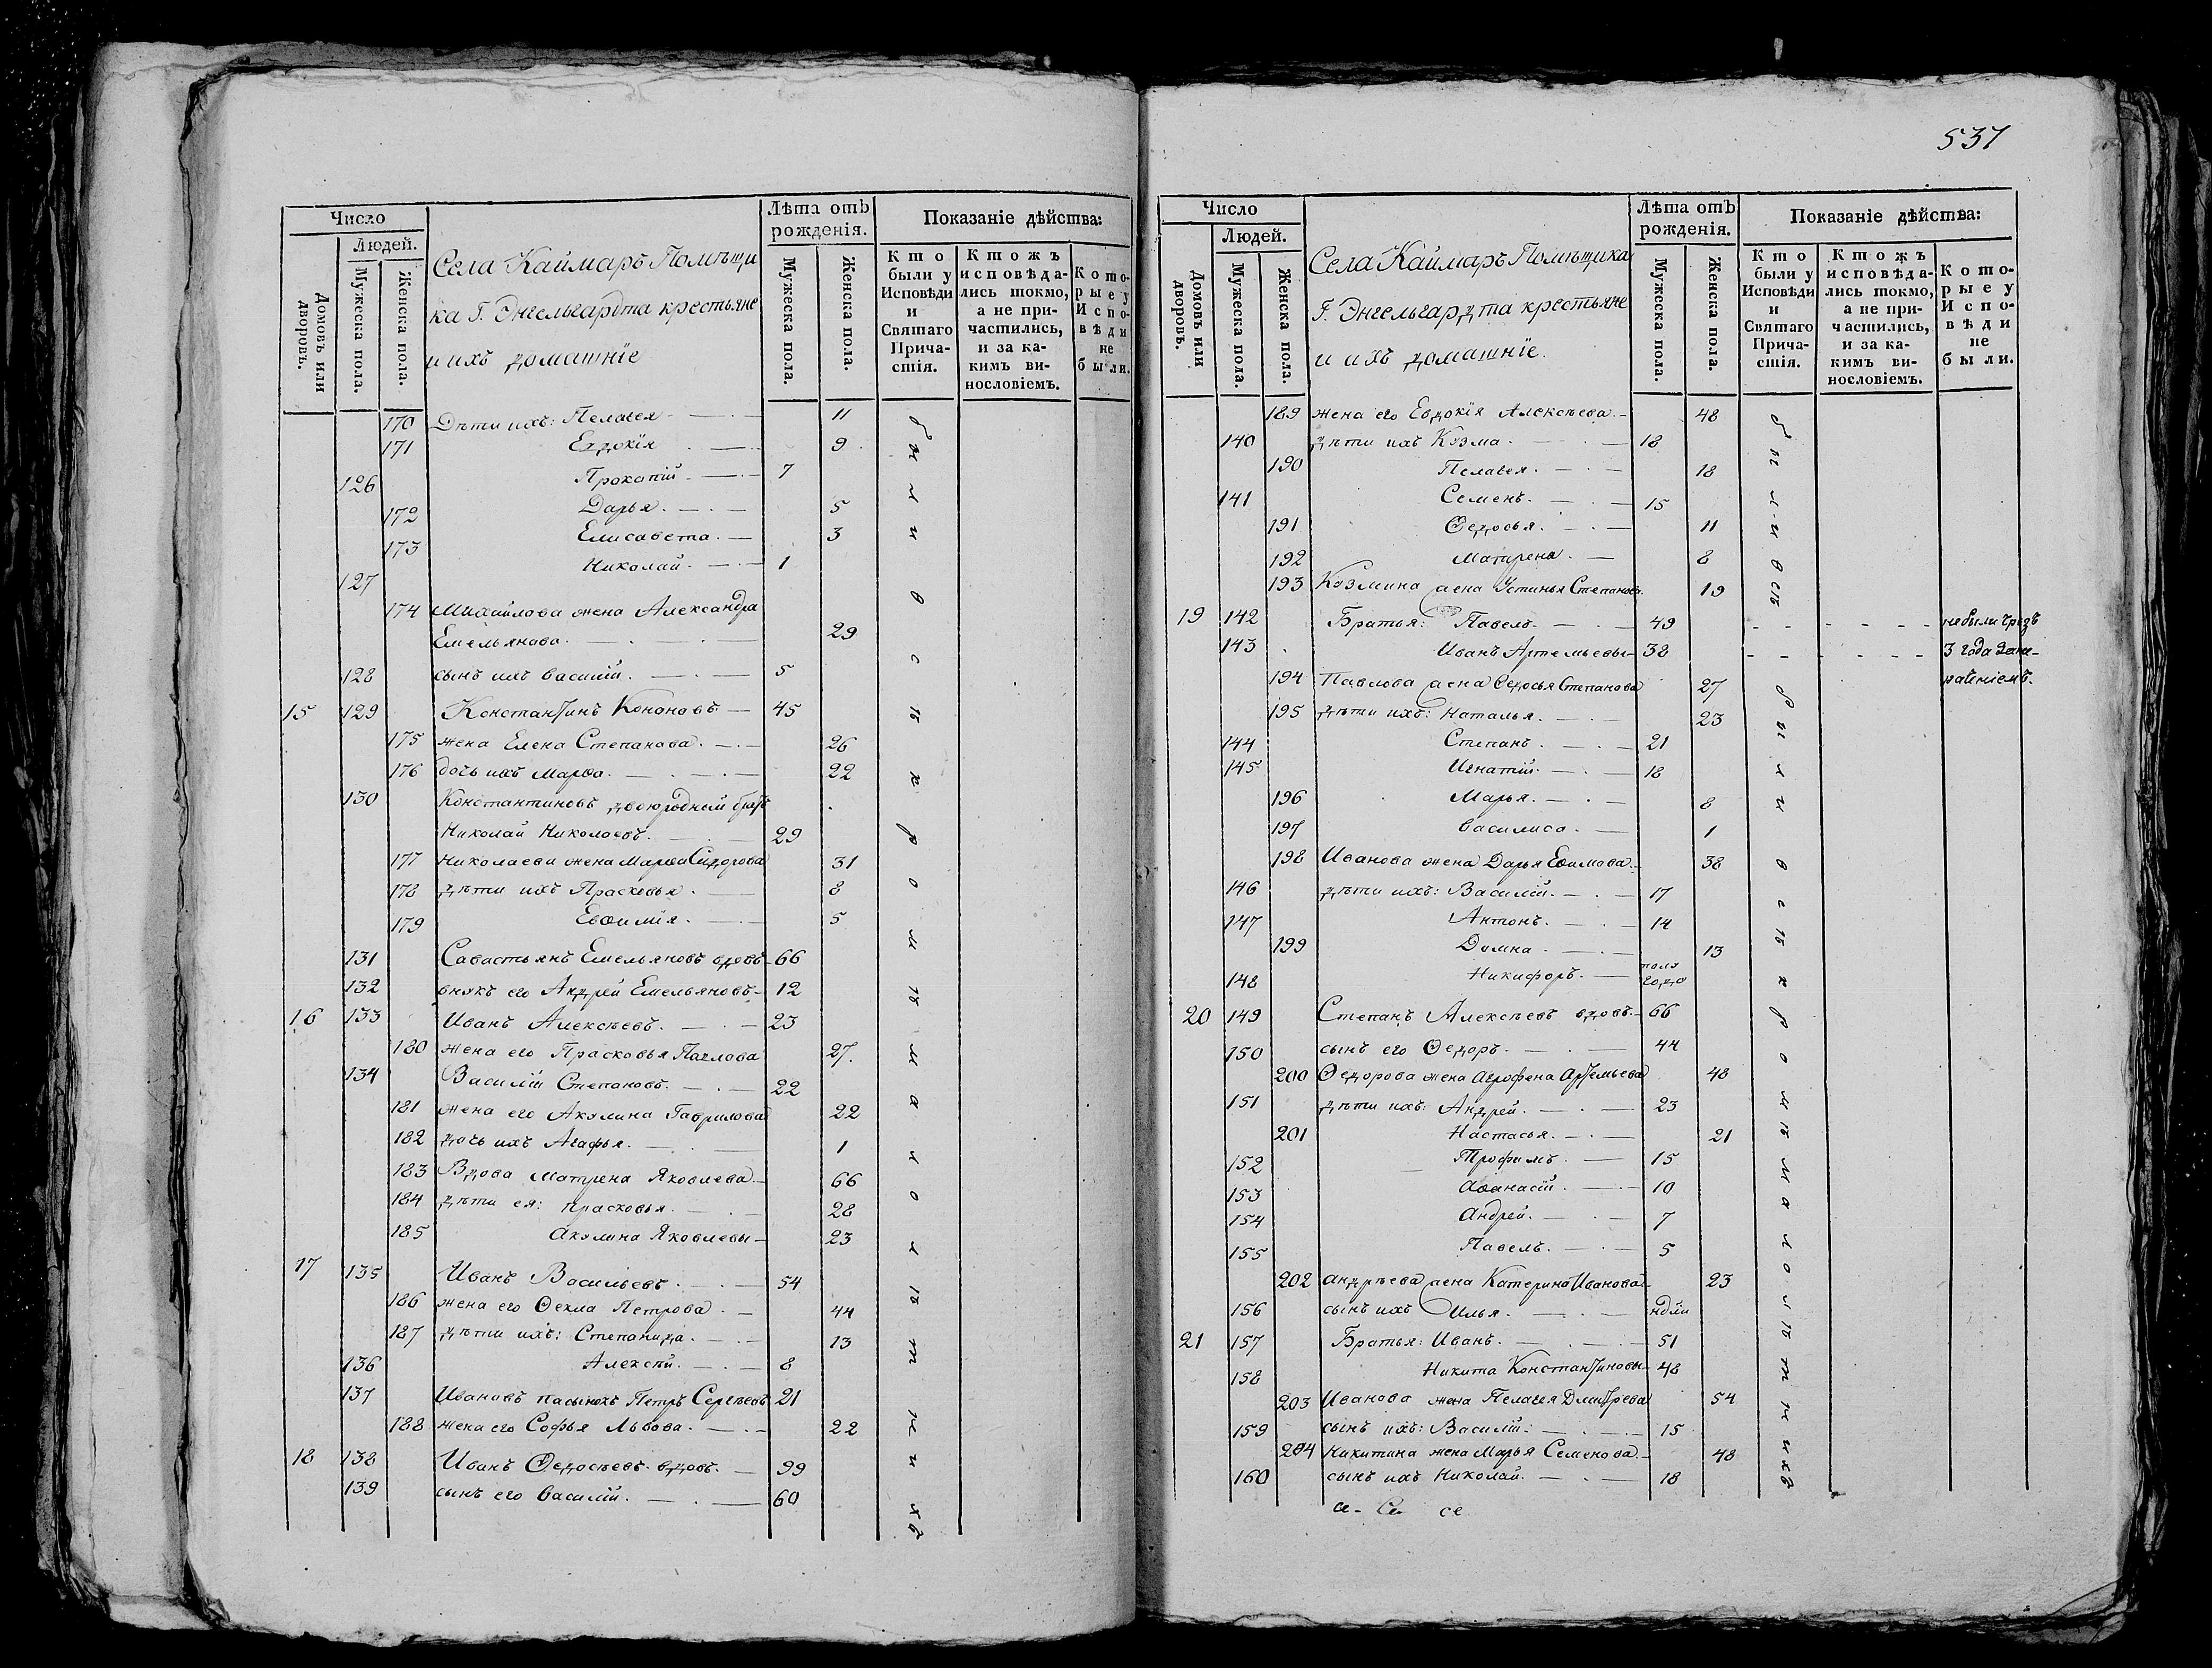 537
Число
Людей.
Домовъ или дворовъ.
Мужеска пола.
Женска пола.
Села Каймаръ Помѣщи
ка Г. Энгельгардта крестьяне
и ихъ домашніе
Лѣта отъ рожденія.
Мужеска пола.
Женска пола.
Показаніе дѣйства:
Кто были у Исповѣди и Святаго Причастія.
Ктожъ исповѣдались токмо, а не причастились, и за какимъ винословіемъ.
Которые у Исповѣди не были.
170 Дѣти ихъ: Пелагея 11
171 Евдокія 9
126 Прокопій 7
172 Дарья 5
173 Елисавета 3
127 Николай 1
174 Михайлова жена Александра
Емельянова 29
128 сынъ ихъ Василій 5
15 129 Константинъ Кононовъ 45
175 жена Елена Степанова 26
176 дочь ихъ Марѳа 22
130 Константиновъ двоюродный братъ
Николай Николаевъ 29
177 Николаева жена Марѳа Сидорова 31
178 дѣти ихъ Прасковья 8
179 Евѳимія 5
131 Савастьянъ Емельяновъ вдовъ 66
132 внукъ его Андрей Емельяновъ 12
16 133 Иванъ Алексѣевъ 23
180 жена его Прасковья Павлова 27
134 Василій Степановъ 22
181 жена его Акулина Гаврилова 22
182 дочь ихъ Агафья 1
183 Вдова Матрена Яковлева 66
184 дѣти ея: Прасковья 28
185 Акулина Яковлевы 23
17 135 Иванъ Васильевъ 54
186 жена его Ѳекла Петрова 44
187 дѣти ихъ: Степанида 13
136 Алексѣй 8
137 Ивановъ пасынокъ Петръ Сергѣевъ 21
188 жена его Софья Львова 22
18 138 Иванъ Ѳедосѣевъ вдовъ 99
139 сынъ его Василій 60
были всѣ кромѣ малолѣтнихъ
Число
Людей.
Домовъ или дворовъ.
Мужеска пола.
Женска пола.
Села Каймаръ Помѣщика
Г. Энгельгардта крестьяне
и ихъ домашніе.
Лѣта отъ рожденія.
Мужеска пола.
Женска пола.
Показаніе дѣйства:
Кто были у Исповѣди и Святаго Причастія.
Ктожъ исповѣдались токмо, а не причастились, и за какимъ винословіемъ.
Которые у Исповѣди не были.
189 жена его Евдокія Алексѣева 48
140 дѣти ихъ Козма 18
190 Пелагея 18
141 Семенъ 15
191 Ѳедосья 11
192 Матрена 8
193 Козмина жена Устинья Степанова 19
были всѣ
19 142 Братья: Павелъ 49 не были чрезъ
143 Иванъ Артемьевы 38 3 года
194 Павлова жена Ѳедосья Степанова 27
195 дѣти ихъ: Наталья 23
144 Степанъ 21
145 Игнатій 18
196 Марья 8
197 Василиса 1
198 Иванова жена Дарья Еѳимова 38
146 дѣти ихъ: Василій 17
147 Антонъ 14
199 Домна 13
148 Никифоръ полгода
20 149 Степанъ Алексѣевъ вдовъ 66
150 сынъ его Ѳедоръ 44
200 Ѳедорова жена Агрофена Артемьева 48
151 дѣти ихъ: Андрей 23
201 Настасья 21
152 Трофимъ 15
153 Аѳанасій 10
154 Андрей 7
155 Павелъ 5
202 Андрѣева жена Катерина Иванова 23
156 сынъ ихъ Илья ндли
21 157 Братья: Иванъ 51
158 Никита Константиновы 48
203 Иванова жена Пелагея Дмитрева 54
159 сынъ ихъ: Василій 15
204 Никитина жена Марья Семенова 48
160 сынъ ихъ Николай 18
были всѣ кромѣ малолѣтнихъ